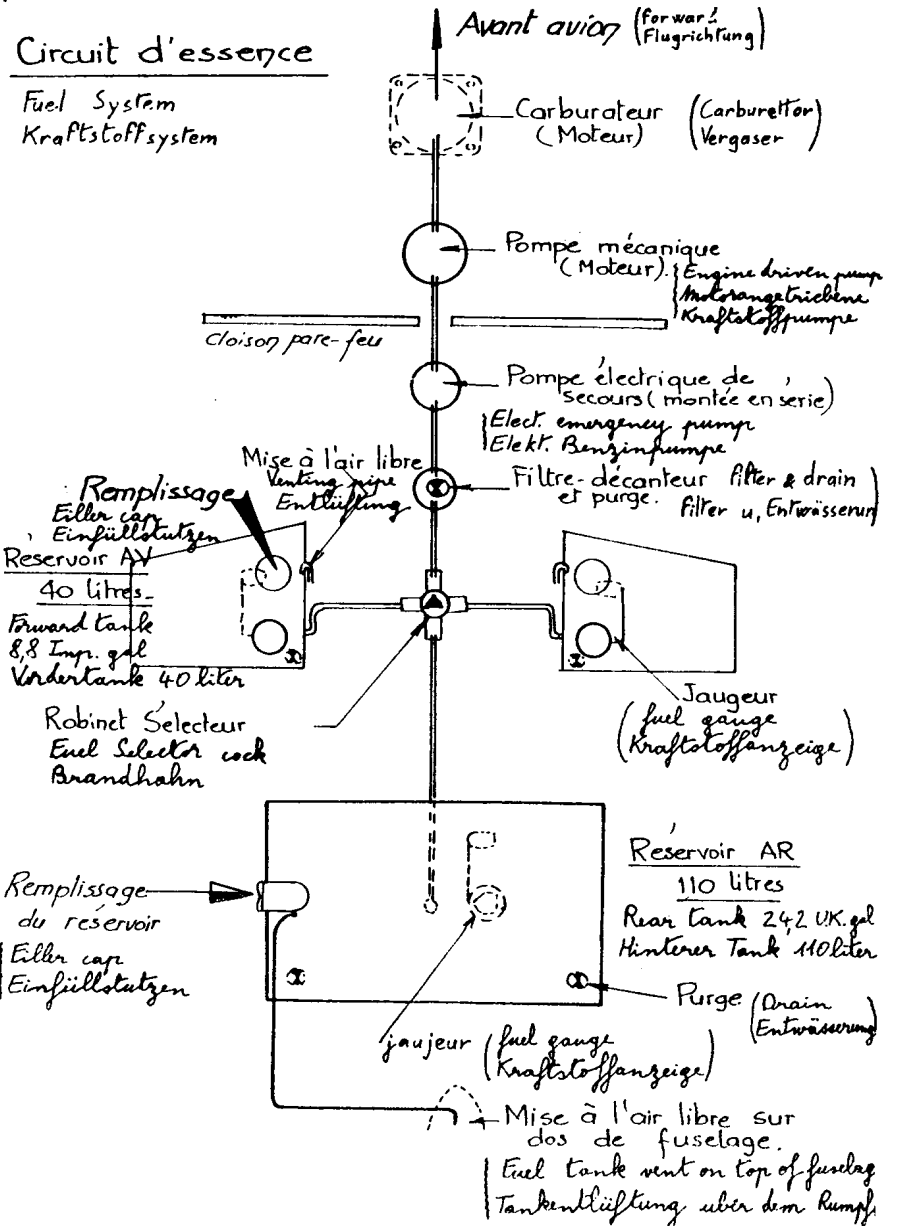 Circuit d'essence
Fuel System
Kraftstoffsystem
Avant avion (forward
Flugrichtung)
Carburateur (Carburettor)
(Moteur) Vergaser
Pompe mécanique
(Moteur).
Engine driven pump
Motorangetriebene
Kraftstoffpumpe
Cloison pare-feu
Pompe électrique de
secours (montée en série)
Elect. emergency pump
Elekt. Benzinpumpe
Mise à l'air libre
Venting pipe
Entlüftung
Filtre-décanteur filter & drain
et purge. Filter u, Entwässerun
Remplissage
Filler cap
Einfüllstutzen
Réservoir AV
40 litres_
Forward tank
8,8 Imp. gal
Vordertank 40 liter
Robinet Sélecteur
Fuel Selector cock
Brandhahn
Jaugeur
(fuel gauge
Kraftstoffanzeige)
Remplissage
du réservoir
Filler cap
Einfüllstutzen
Réservoir AR
110 litres
Rear tank 24,2 UK.gal
Hinterer Tank 110 liter
Purge (Drain
Entwässerung)
jaujeur (fuel gauge
Kraftstoffanzeige)
Mise à l'air libre sur
dos de fuselage.
Fuel tank vent on top of fuselag
Tankentlüftung uber dem Rumpf